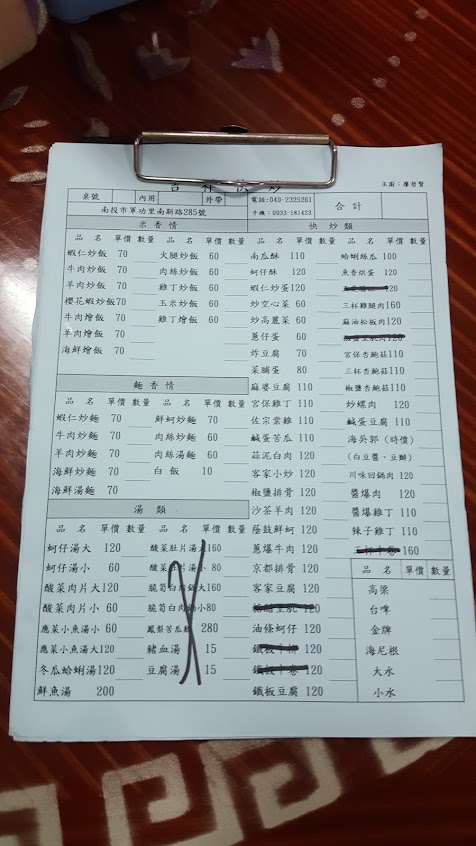 吉祥快炒
主廚：廖哲賢
桌號 內用 外帶 電話:049-2325261 合計
南投市軍功里南新路285號 手機：0933-181423
米香情 快炒類
品名 單價 數量 品名 單價 數量 品名 單價 數量 品名 單價 數量
蝦仁炒飯 70 火腿炒飯 60 南瓜酥 110 蛤蜊絲瓜 100
牛肉炒飯 70 肉絲炒飯 60 蚵仔酥 120 魚香烘蛋 120
羊肉炒飯 70 雞丁炒飯 60 蝦仁炒蛋 120
櫻花蝦炒飯 70 玉米炒飯 60 炒空心菜 60 三杯雞腿肉 160
牛肉燴飯 70 雞丁燴飯 60 炒高麗菜 60 麻油松板肉 120
羊肉燴飯 70 蔥仔蛋 60
海鮮燴飯 70 炸豆腐 70 宮保杏鮑菇 110
菜脯蛋 80 三杯杏鮑菇 110
麵香情 麻婆豆腐 110 椒鹽杏鮑菇 110
品名 單價 數量 品名 單價 數量 宮保雞丁 110 炒螺肉 120
蝦仁炒麵 70 鮮蚵炒麵 70 佐宗棠雞 110 鹹蛋豆腐 110
牛肉炒麵 70 肉絲炒麵 60 鹹蛋苦瓜 110 海吳郭 (時價)
羊肉炒麵 70 肉絲湯麵 60 蒜泥白肉 120 (白豆醬、豆瓣)
海鮮炒麵 70 白飯 10 客家小炒 120 川味回鍋肉 120
海鮮湯麵 70 椒鹽排骨 120 醬爆肉 120
湯類 沙茶羊肉 120 醬爆雞丁 110
品名 單價 數量 品名 單價 數量 蔭鼓鮮蚵 120 辣子雞丁 110
蚵仔湯大 120 酸菜肚片湯大 160 蔥爆牛肉 120 160
蚵仔湯小 60 酸菜 湯小 80 京都排骨 120 品名 單價 數量
酸菜肉片大 120 脆筍 大 160 客家豆腐 120 高梁
酸菜肉片小 60 脆筍 小 80 120 台啤
應菜小魚湯小 60 鳳梨苦瓜雞 280 油條蚵仔 120 金牌
應菜小魚湯大 120 豬血湯 15 120 海尼根
冬瓜蛤蜊湯 120 豆腐湯 15 120 大水
鮮魚湯 200 鐵板豆腐 120 小水